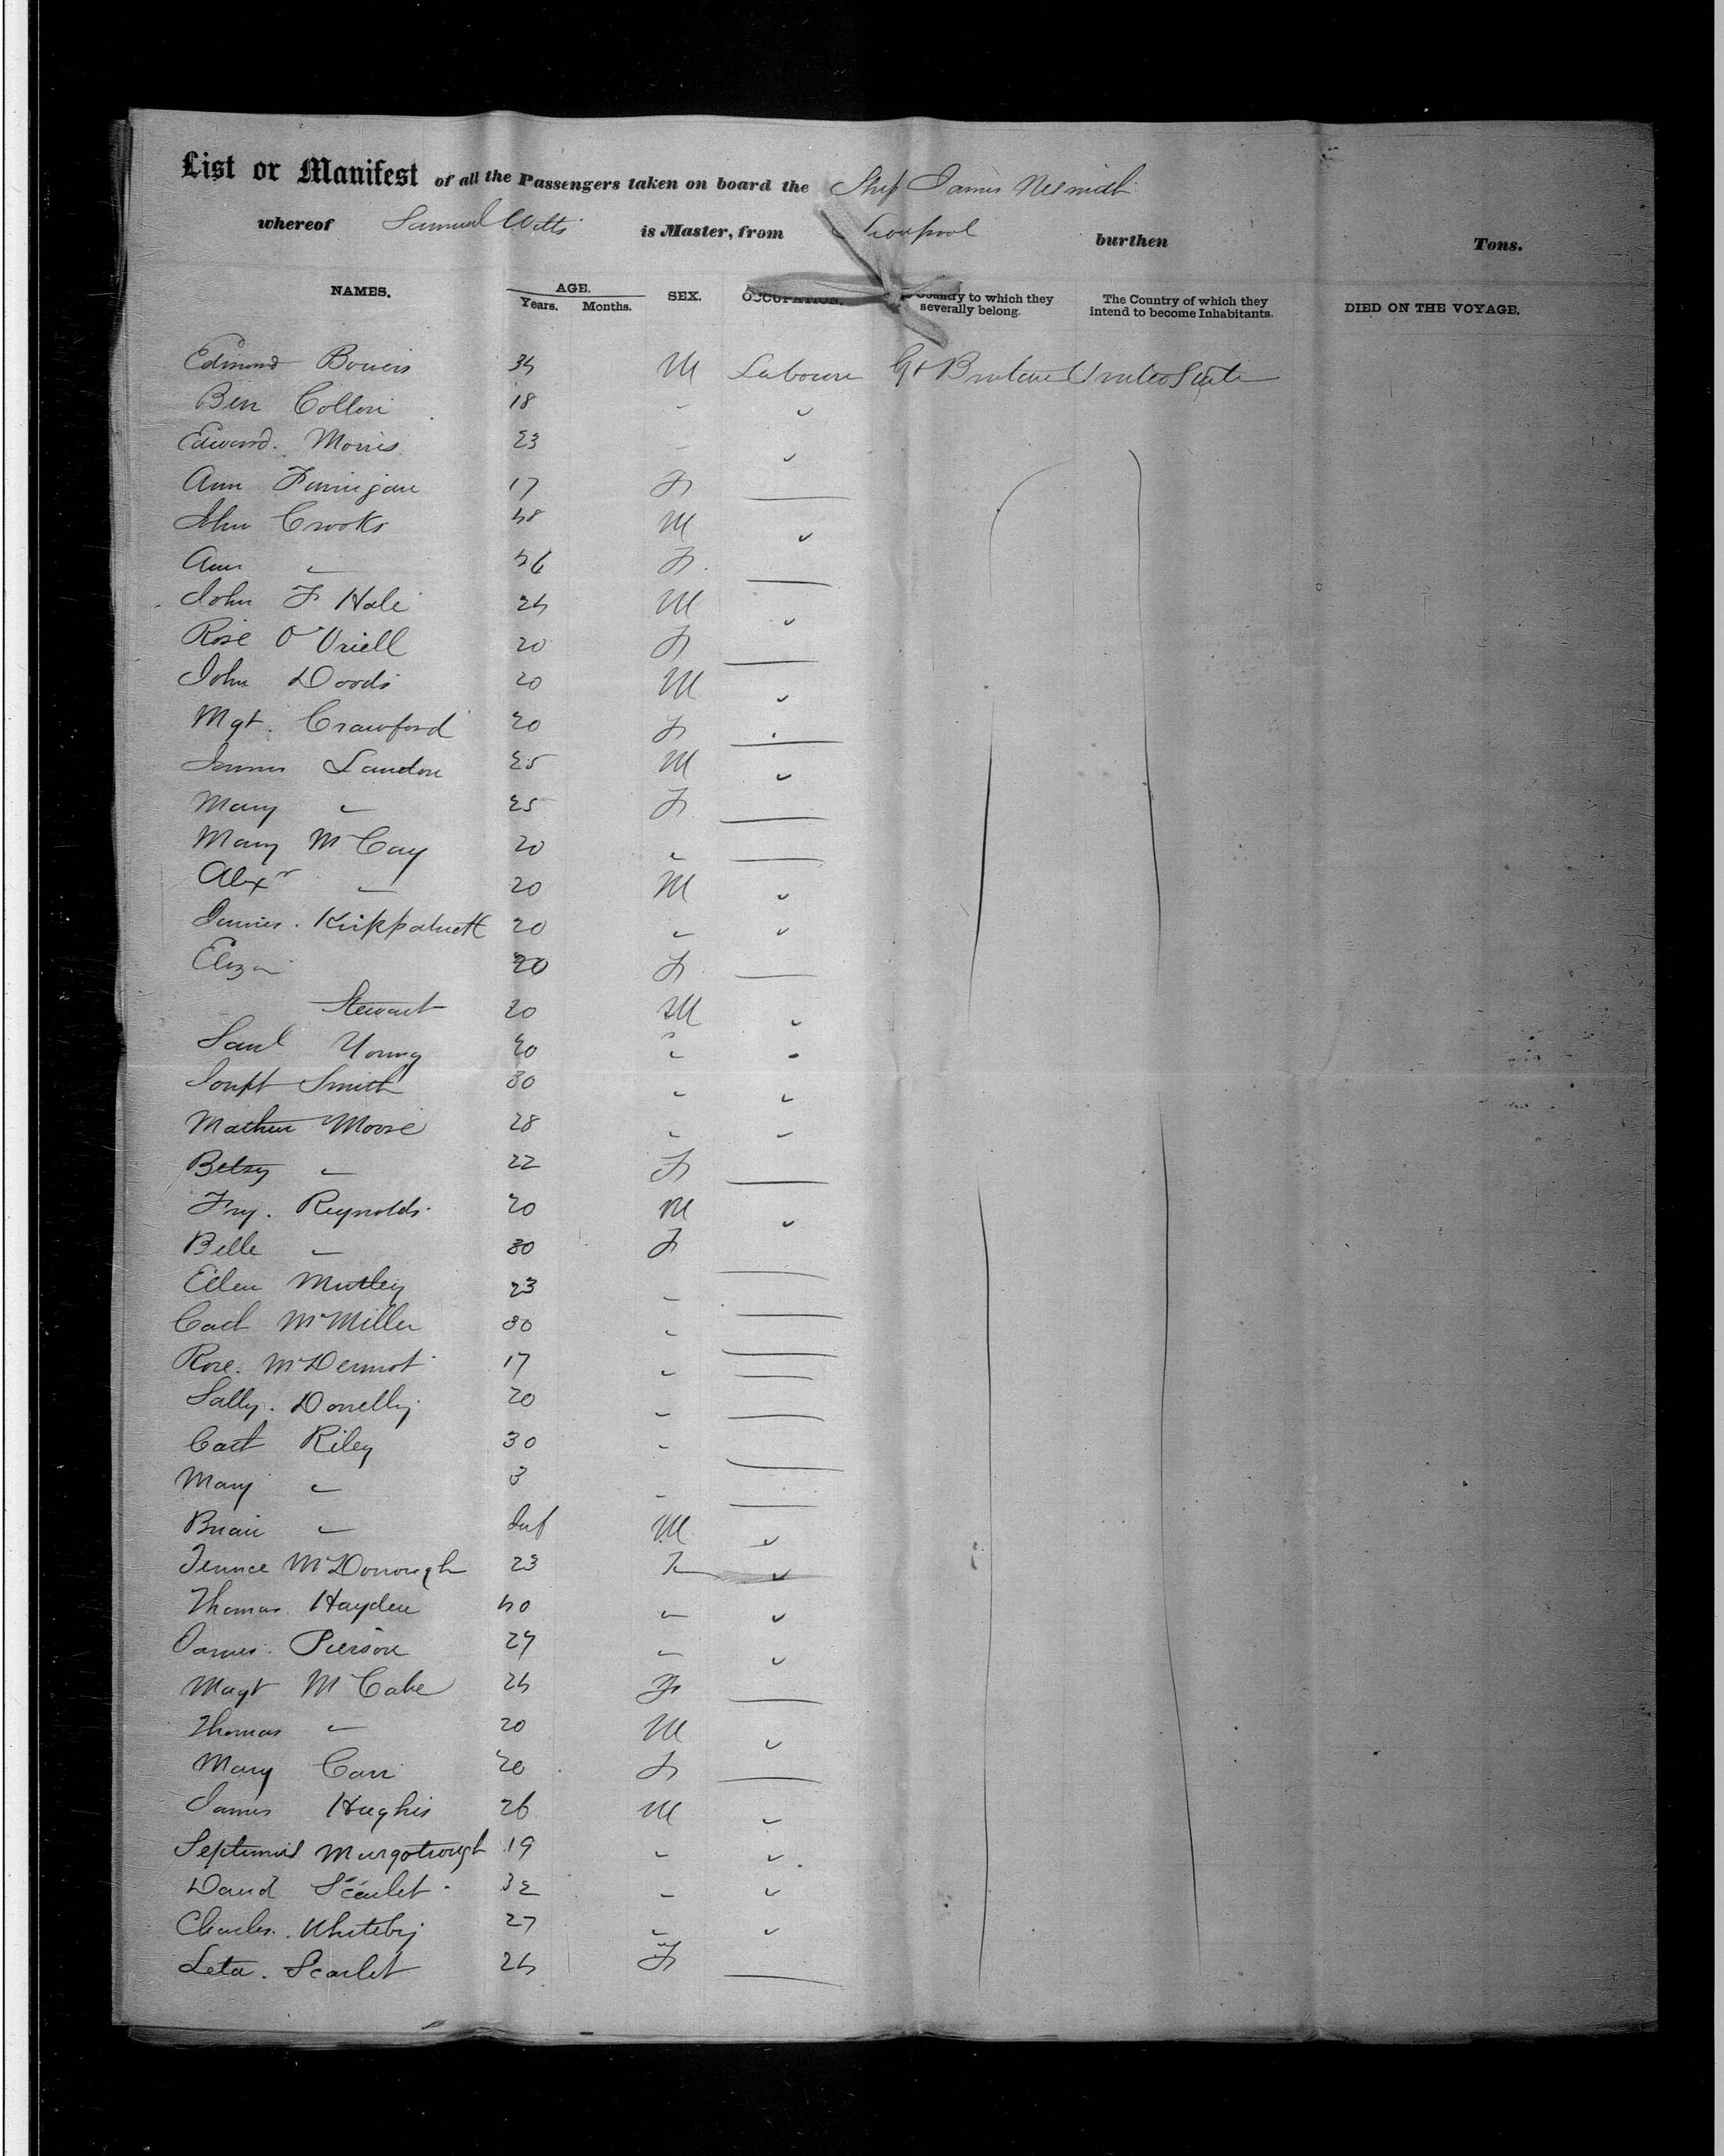 List or Manifest of all the Passengers taken on board the Ship James Nesmith
whereof Samuel Watts is Master, from Liverpool burthen Tons.
NAMES. AGE. Years. Months. SEX. OCCUPATION. Country to which they severally belong. The Country of which they intend to become Inhabitants. DIED ON THE VOYAGE.
Edmond Bowers 34 M Labourer Gt Britain United States
Ben Collon 18 "
Edward. Morris 23 "
Ann Finnigan 17 F
John Crooks 48 M "
Ann " 46 F
John F Hale 24 M "
Rose O'Neill 20 F
John Dodds 20 M "
Mgt. Crawford 20 F
James Landon 25 M "
Mary " 25 F
Mary McCay 20 "
Alexr " 20 M "
James. Kirkpatrick 20 " "
Eliza 20 F
Stewart 20 M "
Saml Young 20 " "
Joseph Smith 30 " "
Mathew Moore 28 " "
Betsy " 22 F
Fry. Reynolds 20 M "
Belle " 30 F
Ellen Murtley 23 "
Cath McMiller 30 "
Rose. McDermot 17 "
Sally. Donelly 20 "
Cath Riley 30 "
Mary " 3 "
Brian " Inf M "
Terence McDonough 23 "
Thomas. Hayden 40 " "
James. Pierson 27 " "
Magt McCabe 24 F
Thomas " 20 M "
Mary Carr 20 F
James Hughes 26 M "
Septimus 19 " "
David Scarlet 32 " "
Charles. Whiteby 27 " "
Leta. Scarlet 24 F